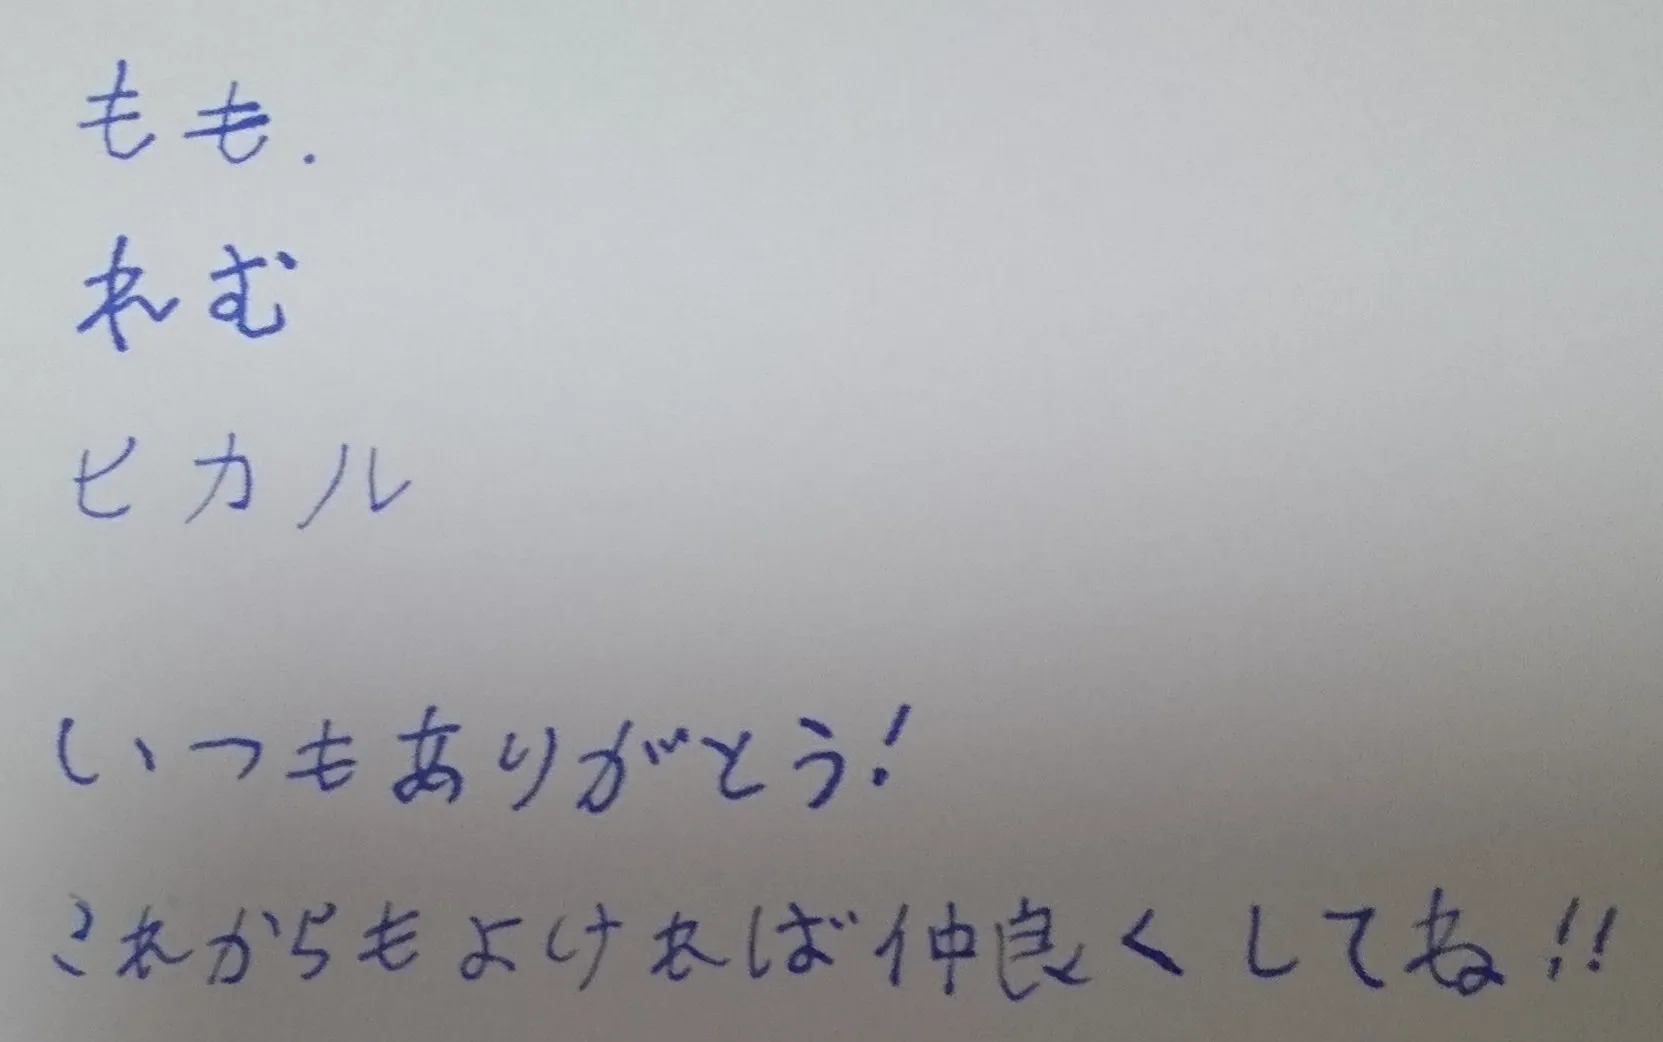 もも.
れむ
ヒカル
いつもありがとう!
これからもよければ仲良くしてね!!